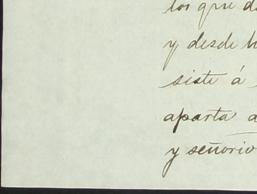 los que d
y desde h
siste á
aparta a
y señorio